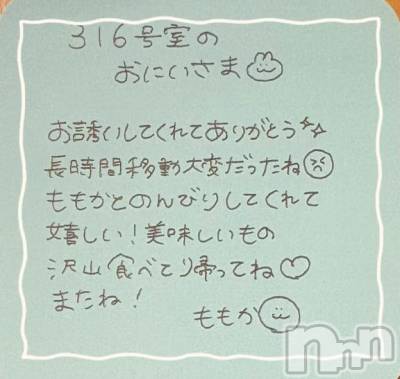 316号室の
おにいさま
お誘いしてくれてありがとう
長時間移動大変だったね
ももかとのんびりしてくれて
嬉しい!美味しいもの
沢山食べてり帰ってね
またね!
ももか
nmn